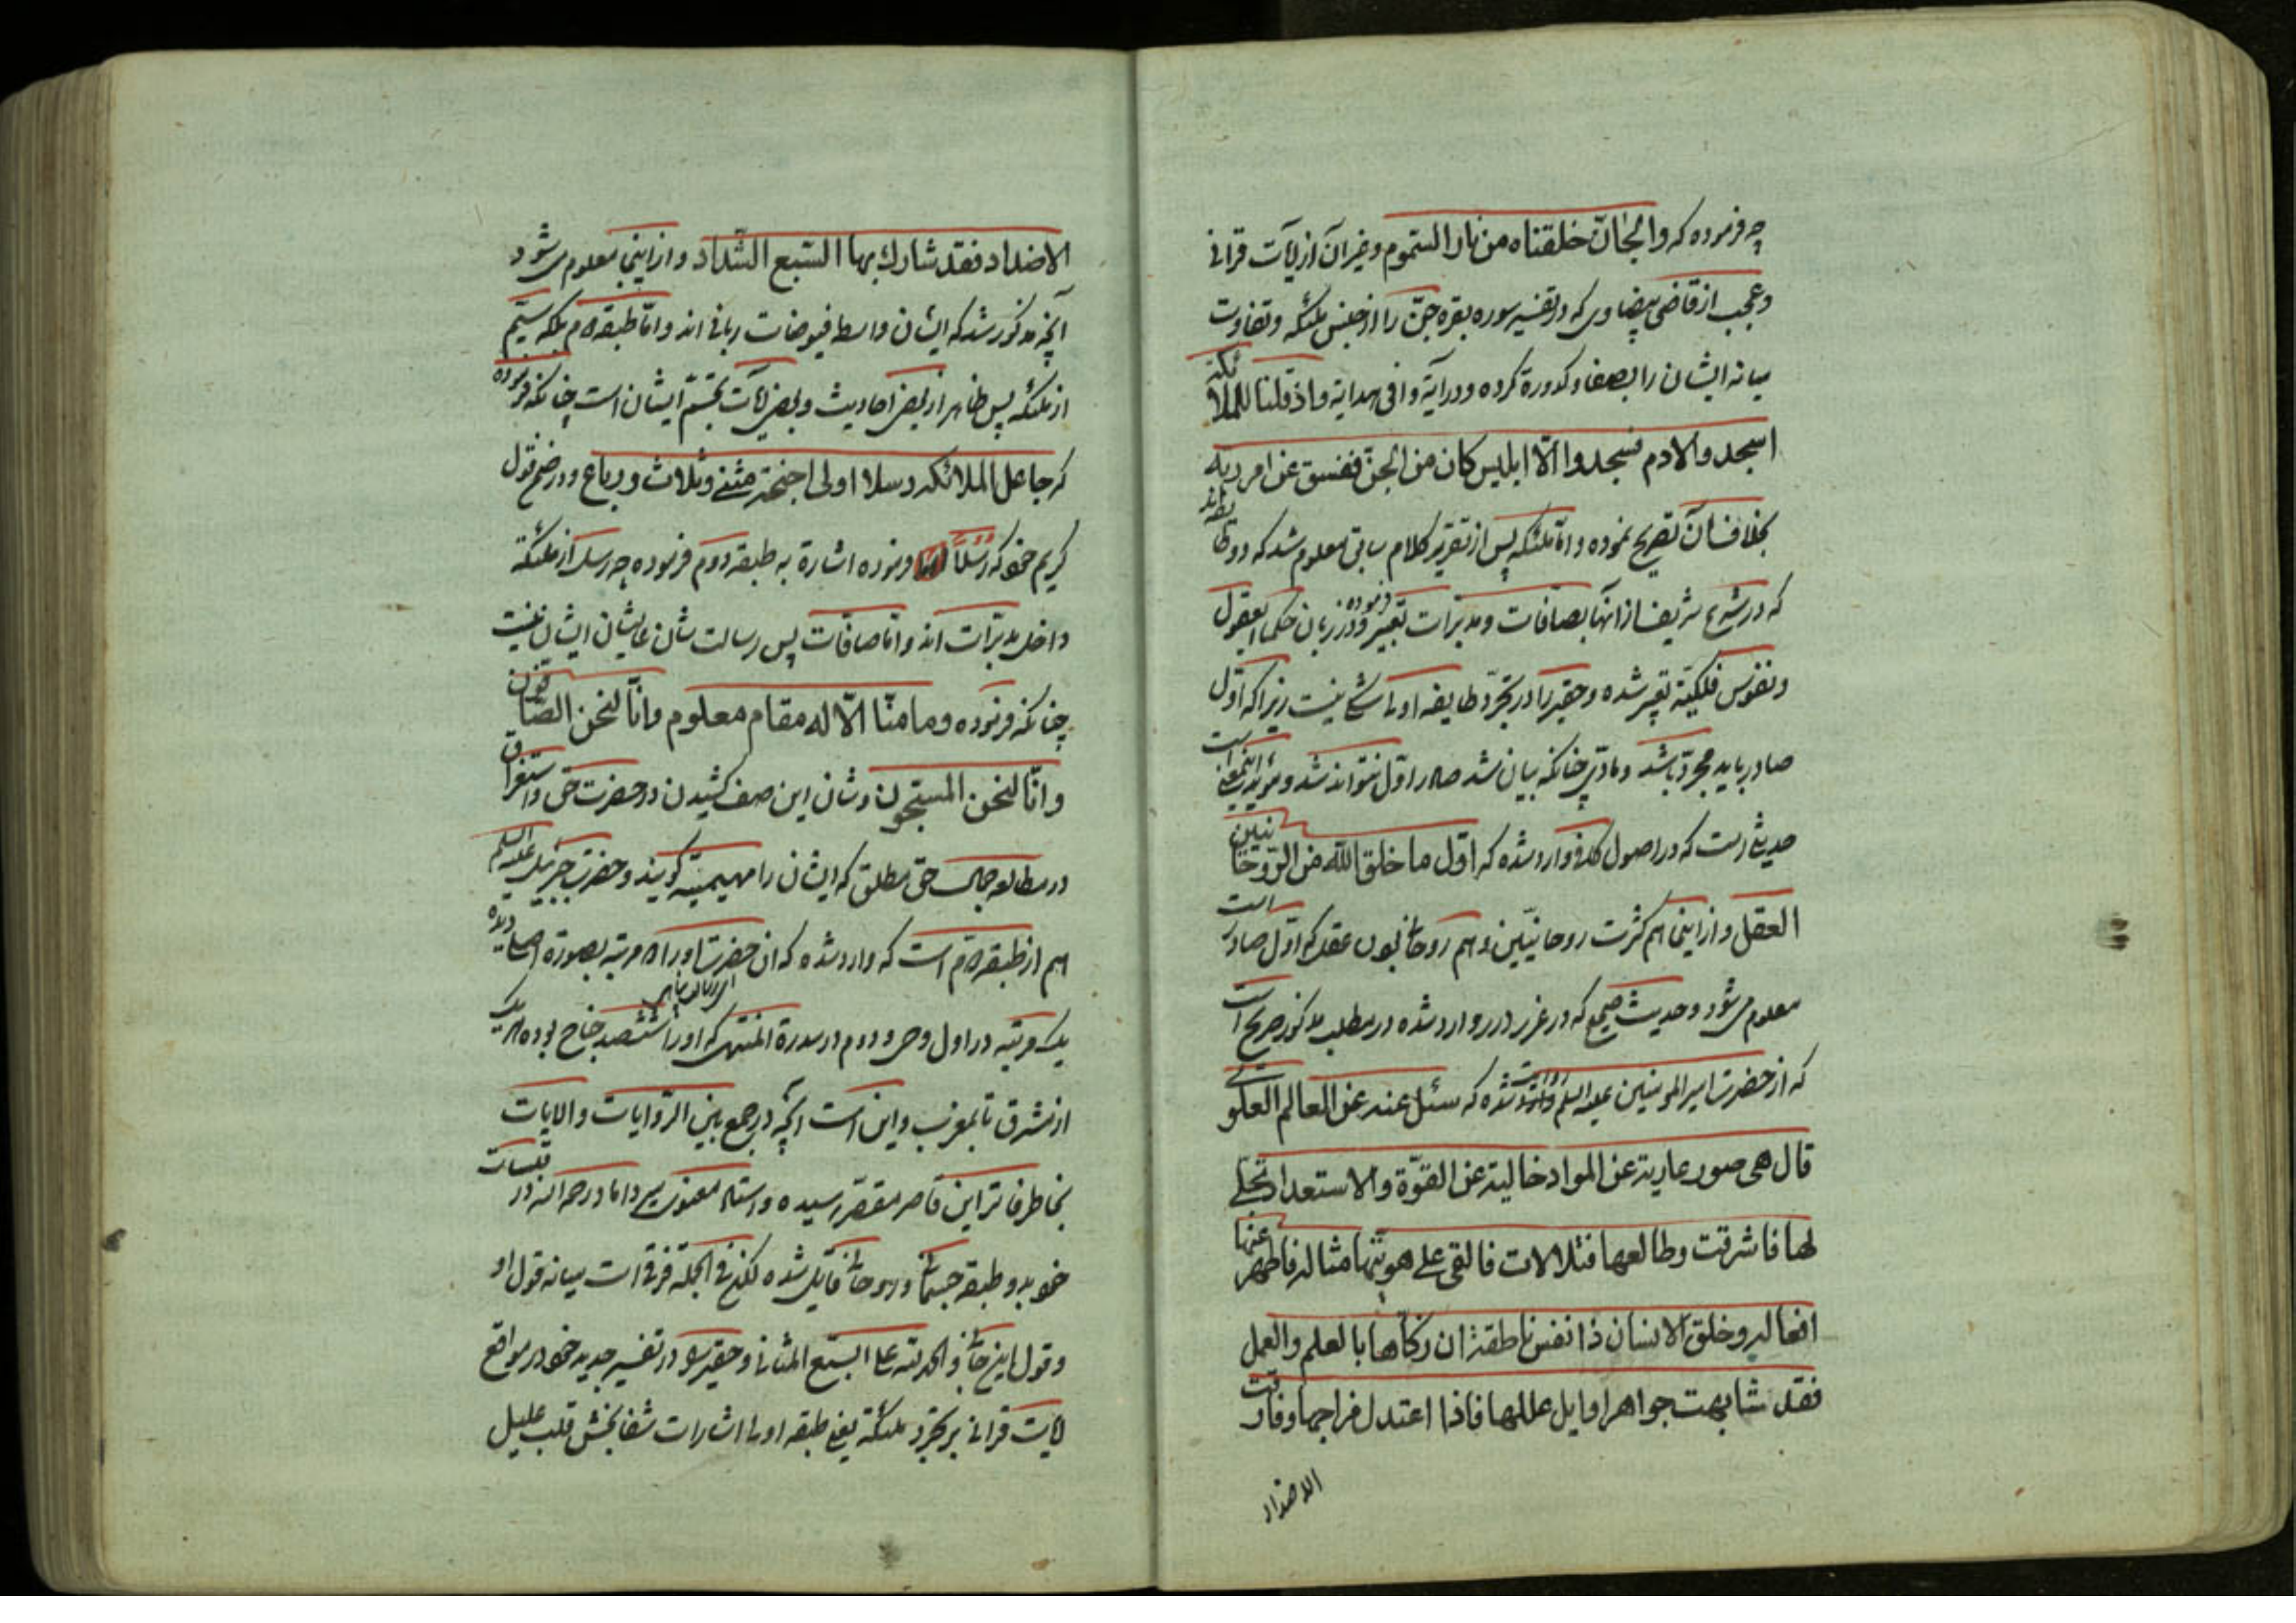 چه فرموده که والجانّ خلقناه من نار السّموم وغیر آن از آیات قرانی
وعجب از قاضی بیضاوی که در تفسیر سوره بقره جنّ را از جنس ملئکه وتفاوت
میانه ایشان را بصفا وکدورة کرده ودر آیة وافی هدایة واذ قلنا للملائکة
اسجدوا لادم فسجدوا الّا ابلیس کان من الجنّ ففسق عن امر ربه
بخلاف آن تصریح نموده وامّا ملئکه پس از تقریر کلام سابق معلوم شد که دو طایفه اند
که در شرع شریف از آنها بصافات ومدبّرات تعبیر فرموده ودر زبان حکما بعقول
ونفوس فلکیّة تعبیر شده وحقیر را در تجرّد طایفه اولی شکی نیست زیرا که اوّل
صادر باید مجرّد باشد ومادّی چنانکه بیان شد صادر اوّل نتواند شد ومؤید اینمعنی است
حدیثی است که در اصول کافی وارد شده که اوّل ما خلق الله من الرّوحانیّین
العقل واز اینجا هم کثرت روحانیّین وهم روحانی بودن عقل که اوّل صادر است
معلوم می شود وحدیث صحیح که در غرر درر وارد شده در مطلب مذکور صریح است
که از حضرت امیر المومنین علیه السلم روایت شده که سئل عنه عن العالم العلوی
قال هی صور عاریة عن المواد خالیة عن القوّة والاستعداد تجلّی
لها فاشرقت وطالعها فتلالات فالقی علی هویّتها مثاله فاظهر عنها
افعاله وخلق الانسان ذا نفس ناطقة ان زکّاها بالعلم والعمل
فقد شابهت جواهر اوایل عللها فاذا اعتدل مزاجها وفارقت
الاضداد
الاضداد فقد شارك بها السّبع الشّداد واز اینجا معلوم می شود
آنچه مذکور شد که ایشان واسطه فیوضات ربانی اند وامّا طبقه دوم بلکه سیّم
از ملئکه پس ظاهر از بعض احادیث وبعض آیات تجسّم ایشان است چنانکه فرموده
که جاعل الملائکة رسلا اولی اجنحة مثنی وثلاث ورباع ودر ضمن قول
کریم خود که رسلاً فرموده اشارة به طبقه دوم فرموده چه رسل از ملئکة
داخل مدبّرات اند وامّا صافات پس رسالت شان عالیشان ایشان نیست
چنانکه فرموده وما منّا الّا له مقام معلوم وانّا لنحن الصّافون
وانّا لنحن المسبّحون وشان این صف کشیدن در حضرت حق واستغراق
در مطالعه جمال حق مطلق که ایشان را مهیمیّة گویند وحضرت جبرئیل علیه السلم
هم از طبقه دوم است که وارد شده که ان حضرت او را دو مرتبه بصورة اصلی دیده
یک مرتبه در اول وحی ودوم در سدرة المنتهی که او را ششصد جناح بوده هر یک
از مشرق تا بمغرب واین است آنچه در جمع بین الرّوایات والایات
بخاطر فاتر این قاصر مقصّر رسیده واستاد معنوی میر داماد رحمه الله در قبسات
خود بدو طبقه جسمانی وروحانی قایل شده لکن فی الجمله فرقی است میانه قول او
وقول این جانی والحمد لله علی السبع المثانی وحقیر را در تفسیر جدید خود در مواقع
آیات قرانی بر تجرّد ملئکة یعنی طبقه اولی اشارات شفا بخش قلب علیل